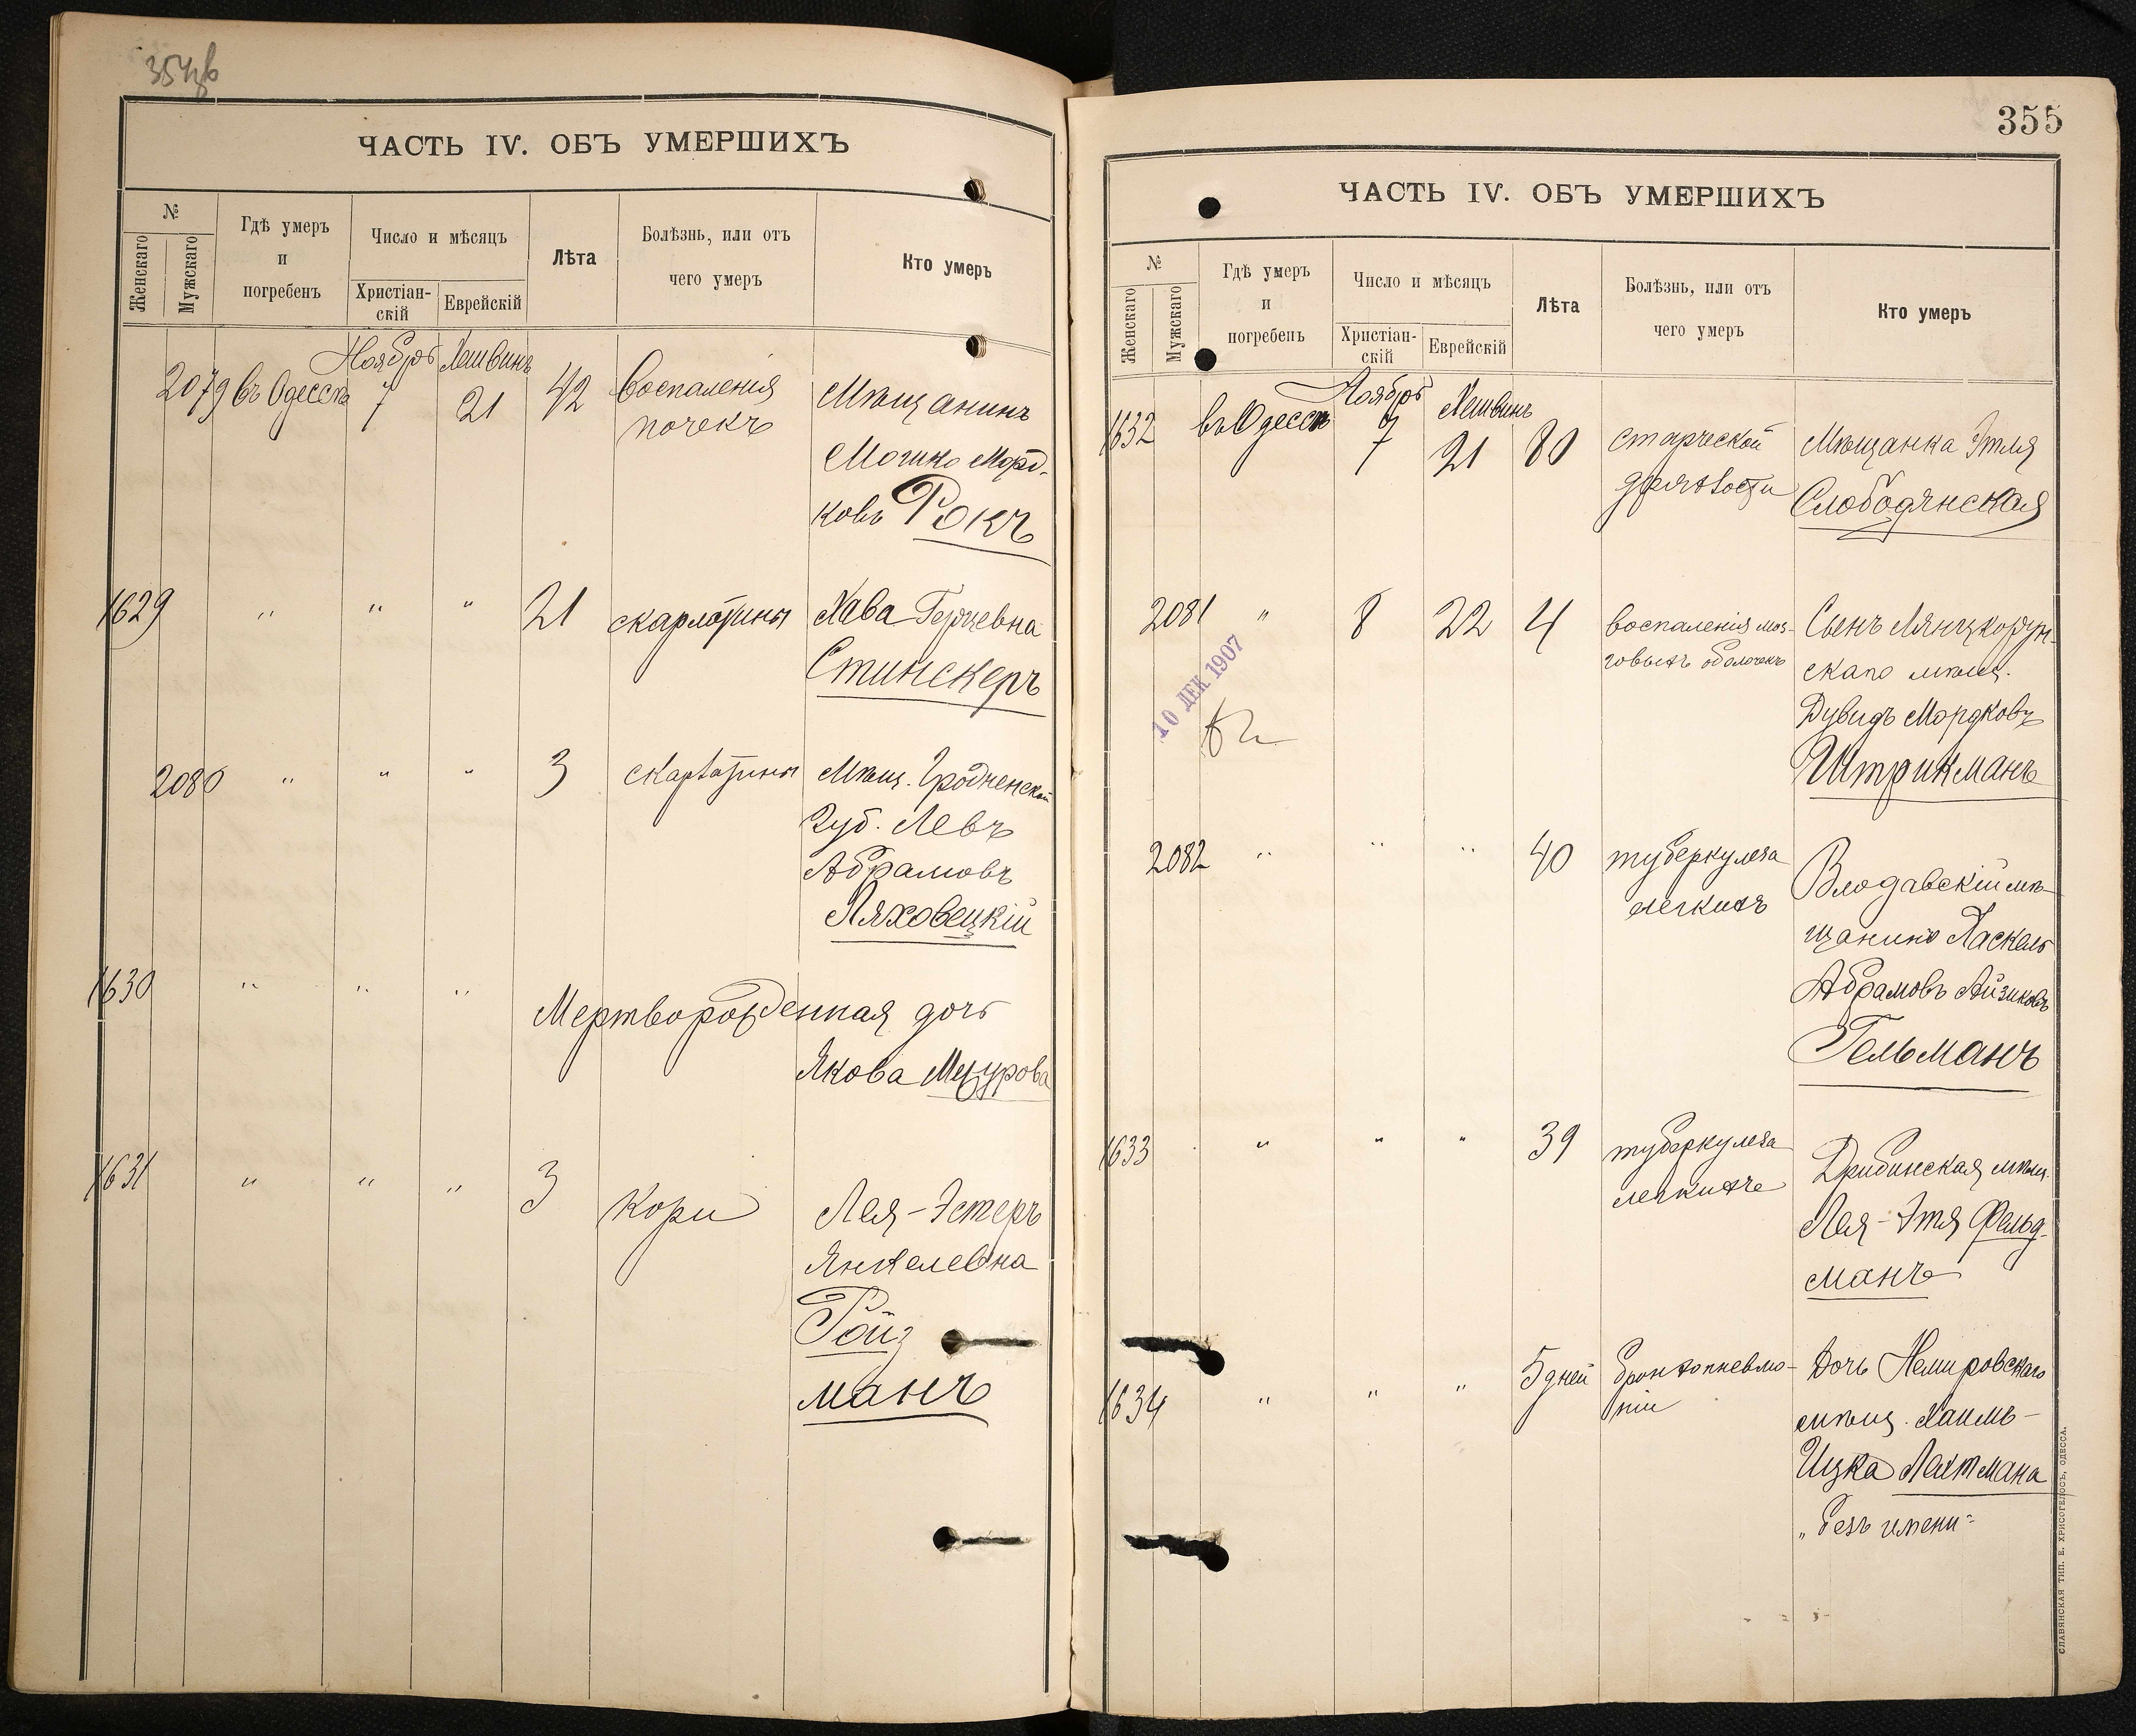 354 об
ЧАСТЬ IV. ОБЪ УМЕРШИХЪ
№
Женскаго
Мужскаго
Гдѣ умеръ
и
погребенъ
Число и мѣсяцъ
Христіан-
скій
Еврейскій
Лѣта
Болѣзнь, или отъ
чего умеръ
Кто умеръ
Ноябрь Хешвинъ
2079 въ Одессѣ 7 21 42 воспаленія Мѣщанинъ
почекъ
Морд-
ковъ Рокъ
1629 " " " 21 скарлатины Хава Герцевна
Стинскеръ
2080 " " " 3 скарлатины Мѣщ. Гродненской
Губ. Левъ
Абрамовъ
Ляховецкій
1630 " " "
Мертворожденная дочь
Якова Мазурова
1631 " " " 3 Кори Лея-Эстеръ
Янкелевна
Ройз
манъ
355
ЧАСТЬ IV. ОБЪ УМЕРШИХЪ
№
Женскаго
Мужскаго
Гдѣ умеръ
и
погребенъ
Число и мѣсяцъ
Христіан-
скій
Еврейскій
Лѣта
Болѣзнь, или отъ
чего умеръ
Кто умеръ
Ноябрь Хешвинъ
1632 въ Одессѣ 7 21 80 старческой Мѣщанка Этля
дряхлости Слободянская
2081 " 8 22 4 воспаленія моз- Сынъ Лянцкорун-
говыхъ оболочекъ скаго мѣщ.
10 ДЕК 1907
Дувидъ Мордковъ
Штрикманъ
2082 " " " 40 туберкулеза Влодавскій мѣ-
легкихъ щанинъ Паскель
Абрамовъ Айзиковъ
Гельманъ
1633 " " " 39 туберкулеза Дрибинская мѣщ.
легкихъ Лея-Этя Фельд-
манъ
1634 " " " 5 дней бронхопневмо- Дочь Немировскаго
ніи мѣщ. Хаимъ-
Ицка Лахтмана
„безъ имени"
СЛАВЯНСКАЯ ТИП. Е. ХРИСОГЕЛОСЪ, ОДЕССА.